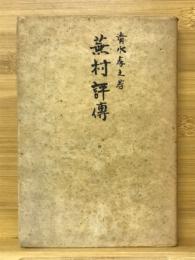 清水孝之著
蕪村評傳